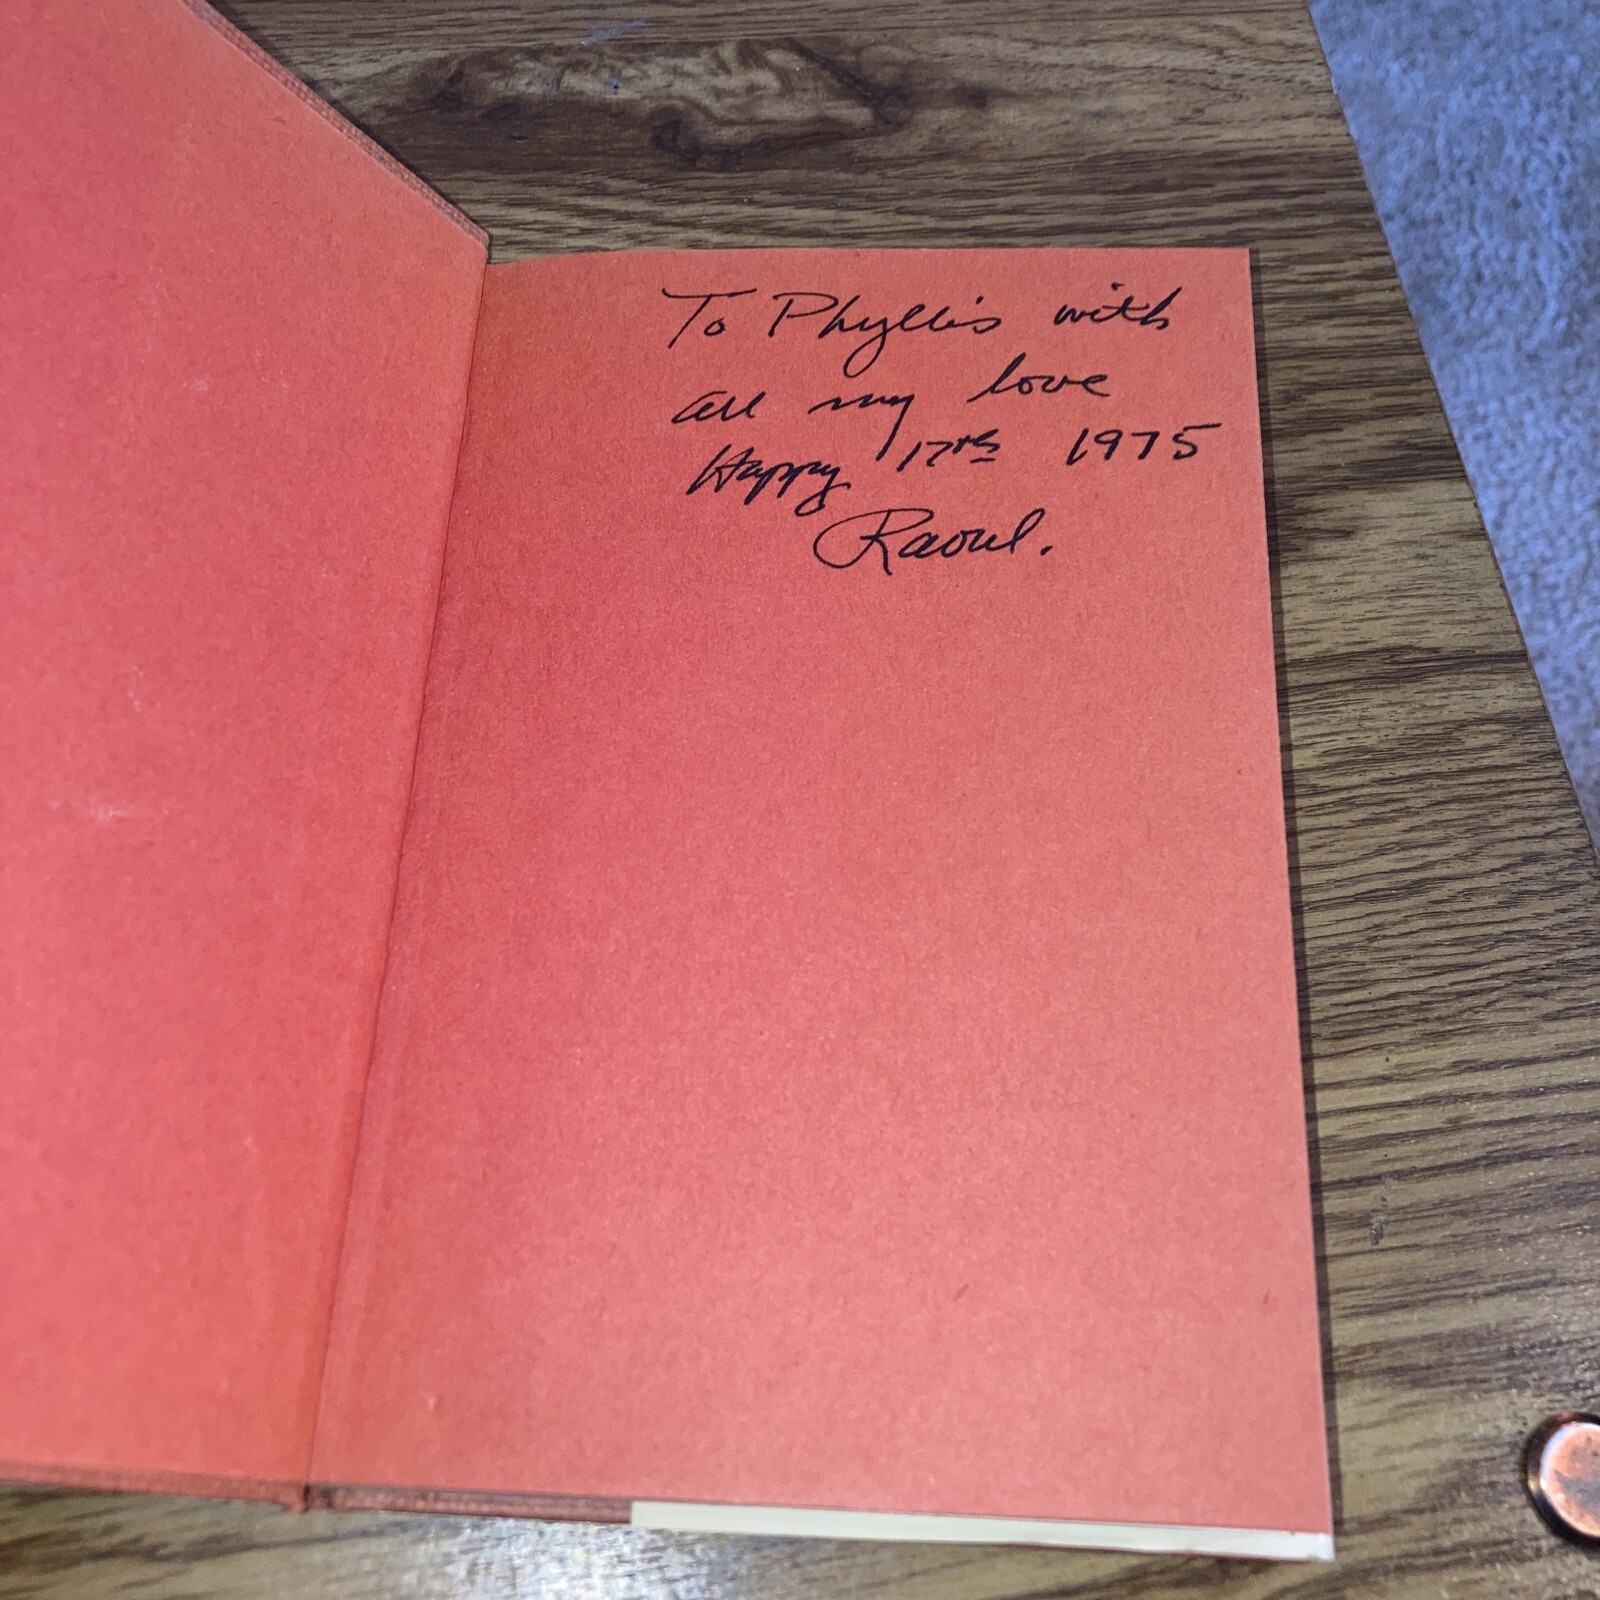 To Phyllis with
all my love
Happy 17th 1975
Raoul.